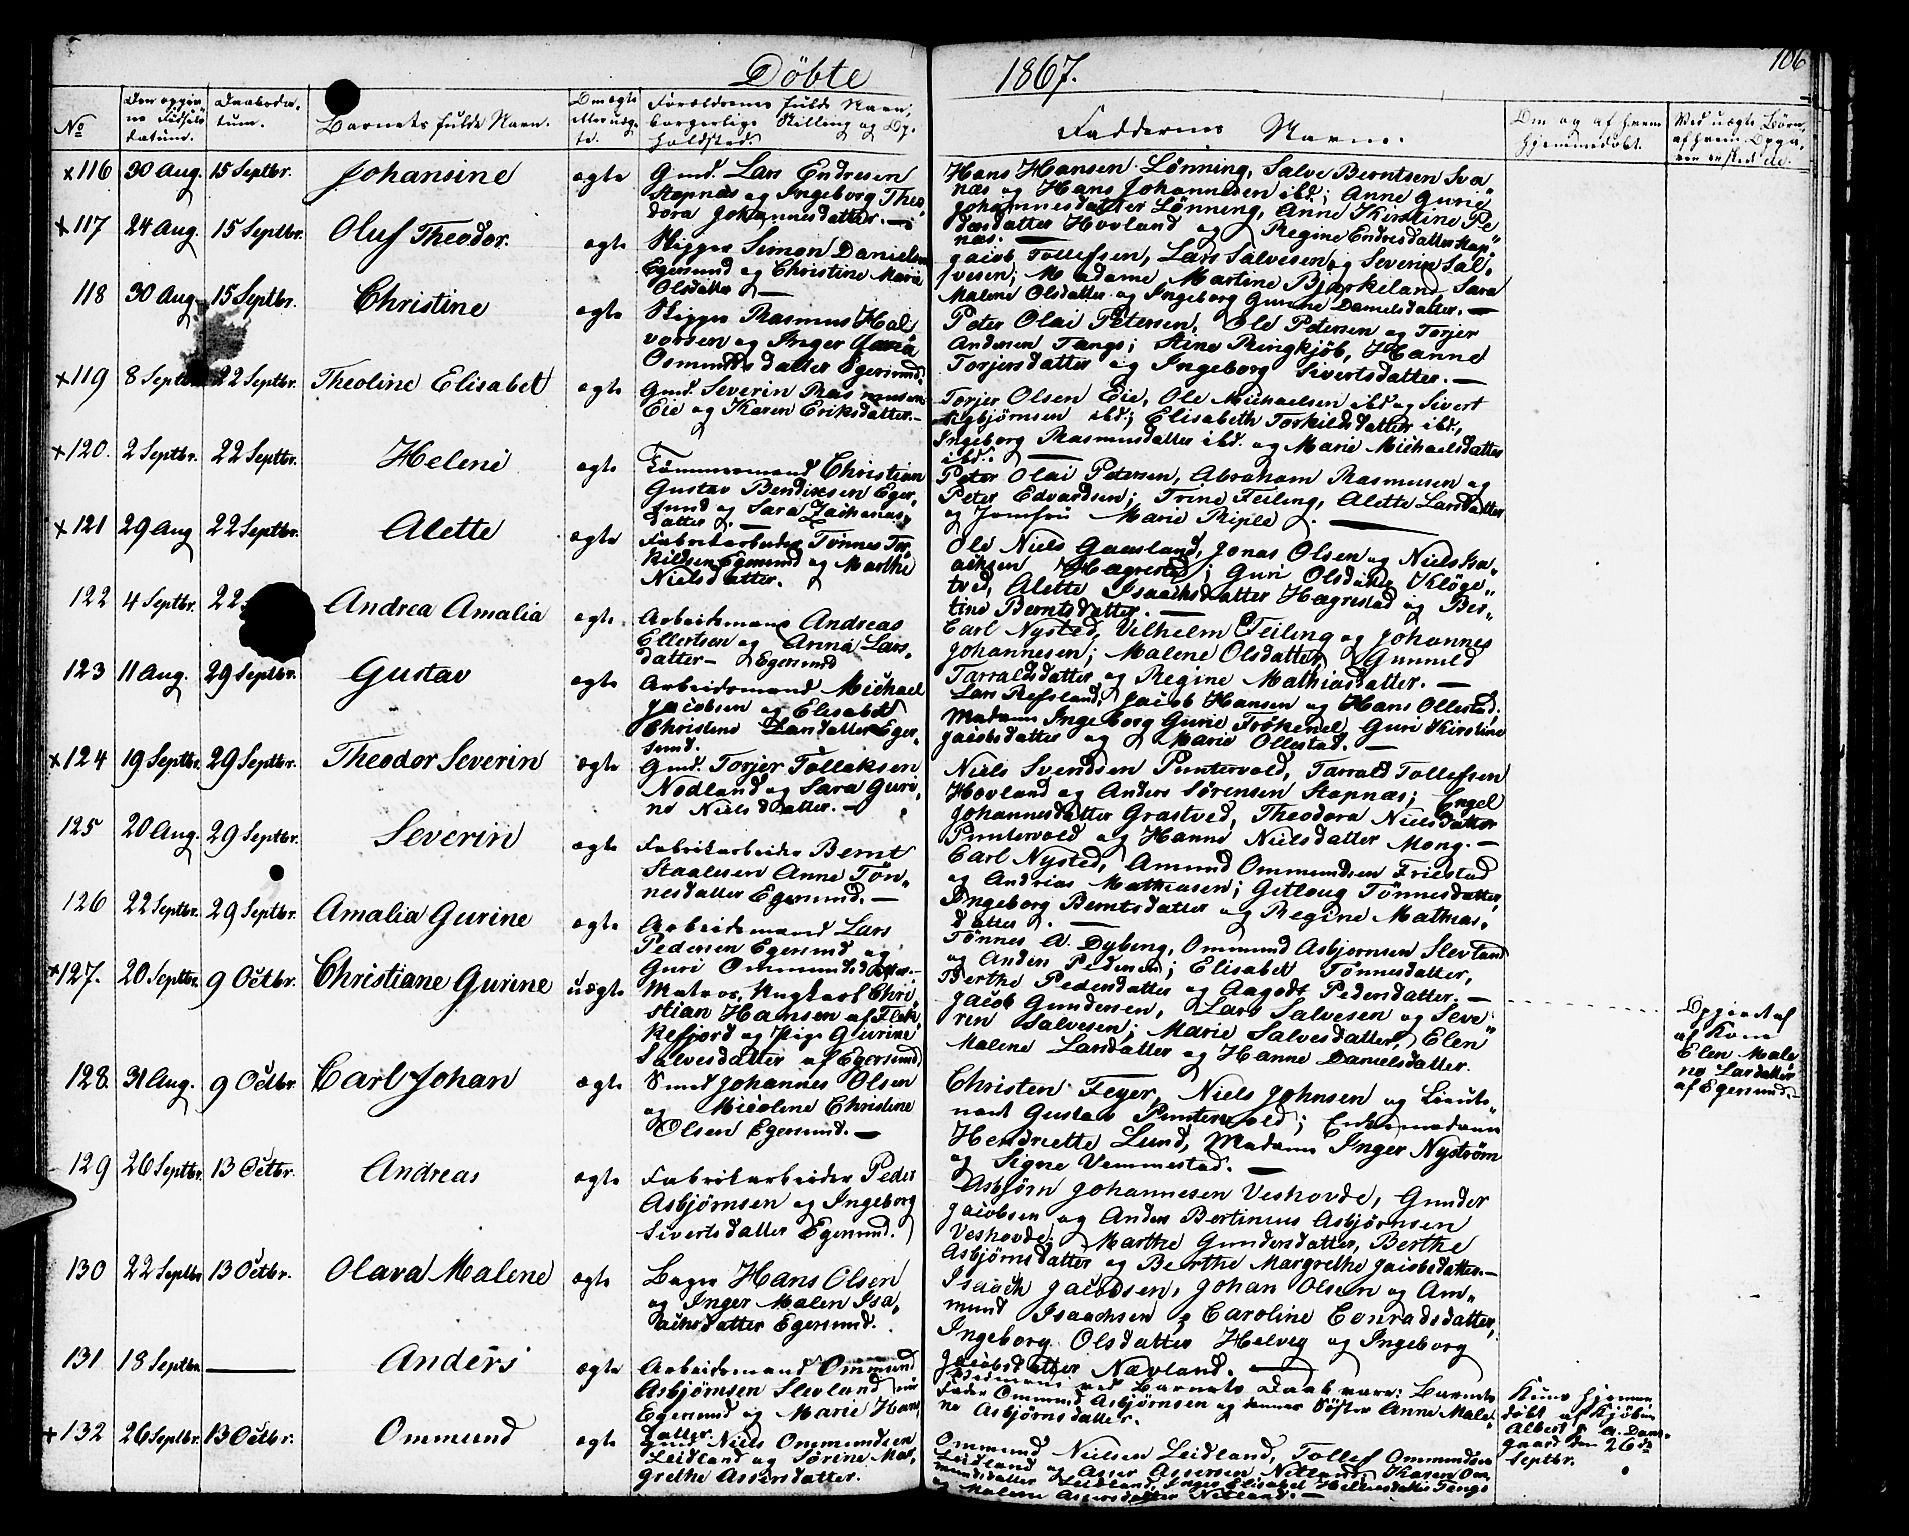 Döbte 1867. 106
No
Den opgiv
ne Födsels
datum.
Daabsda-
tum.
Barnets fulde Navn.
Om ægte
eller uæg-
te.
Forældrenes fulde Navn,
borgerlige Stilling og Op-
holdsted.
Faddernes Navn.
Om og af hvem
hjemmedöbt.
Med uægte Börn,
af hvem Opga-
ven
x116 30 Aug. 15 Septbr. Johansine ægte
Gmd. Lars Endresen
Stapnæs og Ingeborg Theo-
dora Johannesdatter.
Hans Hansen Lønning, Salve Berntsen Sva-
næs og Hans Johannesen ibd; Anne Gurie
Johannesdatter Lønning, Anne Kirstine Pe-
dersdatter Hovland og Regine Endresdatter Stap-
næs.
x117 24 Aug. 15 Septbr. Oluf Theodor. ægte
Skipper Simon Danielsen
Egersund og Christine Marie
Olsdatter
Jacob Tollefsen, Lars Salvesen og Severin Sal-
vesen; Madame Martine Bjerkeland Sara
Malene Olsdatter og Ingeborg Gurine Danielsdatter.
118 30 Aug. 15 Septbr. Christine ægte
Skipper Rasmus Hal
vorsen og Inger Maria
Osmundsdatter Egersund.
Peter Olai Petersen, Ole Petersen og Torjer
Andersen Tangs; Stine Ringkjöb, Hanne
Torjersdatter og Ingeborg Sivertsdatter.
x119 8 Septbr. 22 Septbr. Theoline Elisabet ægte
Gmd. Severin Rasmusen
Eie og Karen Eriksdatter.
Torjer Olsen Eie, Ole Michaelsen ibd og Sivert
Asbjørnsen ibd; Elisabeth Torkildsdatter ibd,
Ingeborg Rasmusdatter ibd. og Marie Michaelsdatter
ibd.
x120. 2 Septbr. 22 Septbr. Helene ægte
Tömmermand Christian
Gustav Bendixsen Eger-
sund og Sara Zacharias-
datter.
Peter Olai Petersen, Abraham Rasmusen og
Peter Edvardsen; Trine Feiling, Alette Larsdatter
og Jomfru Marie Riple.
x121 29 Aug 22 Septbr. Alette ægte
Fabrikarbeider Tönnes Tor-
kildsen Egersund og Marthe
Nielsdatter.
Ole Niels Gaasland, Jonas Olsen og Niels Isa-
achsen Hægrestad; Guri Olsdatter Klöge-
tved, Alette Isaachsdatter Hægrestad og Ber-
tine Berntsdatter.
122 4 Septbr. 22 Andrea Amalia ægte.
Arbeidsmand Andreas
Ellertsen og Anna Lars-
datter Egersund
Carl Nysted, Vilhelm Feiling og Johannes
Johannesen; Malene Olsdatter, Gunnild
Tarraldsdatter og Regine Mathiasdatter.
123 11 Aug. 29 Septbr. Gustav ægte
Arbeidsmand Michael
Jacobsen og Elisabet
Christene Larsdatter Eger-
sund.
Lars Refsland, Jacob Hansen og Hans Ollestad.
Madame Ingeborg Gurie Tröknel, Guri Kirstine
Jacobsdatter og Marie Ollestad.
x124 19 Septbr. 29 Septbr. Theodor Severin ægte
Gmd. Torjer Tollaksen
Nodland og Sara Guri-
ne Nielsdatter.
Niels Svendsen Puntervold, Tarrald Tollefsen
Hovland og Anders Sörensen Stapnæs; Engel
Johannesdatter Grastved, Theodora Nielsdatter
Puntervold og Hanne Nielsdatter Mong.
125 20 Aug. 29 Septbr. Severin ægte
Fabrikarbeider Bernt
Staalesen Anne Tön-
nesdatter Egersund.
Carl Nysted, Amund Ommundsen Friestad
og Andreas Mathiasen; Gitlaug Tönnesdatter,
Ingeborg Berntsdatter og Regine Mathias-
datter.
126 22 Septbr. 29 Septbr. Amalia Gurine ægte
Arbeidsmand Lars
Pedersen Egersund og
Guri Ommundsdatter.
Tönnes A. Dyberg, Ommund Asbjornsen Slevland
og Anders Pedersen; Elisabet Tönnesdatter,
Berthe Pedersdatter og Aagode Pedersdatter.
x127. 20 Septbr. 9 Octbr. Christiane Gurine uægte
Matros, Ungkarl Chri-
stian Hansen af Flek-
kefjord og Pige Gurine
Salvesdatter af Egersund
Jacob Gundersen, Lars Salvesen og Seve-
rin Salvesen; Marie Salvesdatter, Elen
Malene Larsdatter og Hanne Danielsdatter.
Opgivet af
af Kone
Elen Male
ne Larsdatter
af Egersund.
128. 31 Aug. 9 Octbr Carl Johan ægte
Smed Johannes Olsen
og Nicoline Christine
Olsen Egersund.
Christen Feyer, Niels Johnsen og Lieute-
nant Gustav Puntervold; Enkemadame
Hendriette Lund, Madame Inger Nyström
og Signe Vemmestad.
129 26 Septbr. 13 Octbr. Andreas ægte
Fabrikarbeider Peder
Asbjørnsen og Ingeborg
Sivertsdatter Egersund.
Asbjörn Johannesen Veshovde, Gunder
Jacobsen og Anders Bertinius Asbjörnsen
Veshovde; Marthe Gundersdatter, Berthe
Asbjörnsdatter og Berthe Margrethe Jacobsdatter.
130 22 Septbr 13 Octbr. Olava Malene ægte
Bager Hans Olsen
og Inger Malen Isa-
achsdatter Egersund.
Isaach Jacobsen, Johan Olsen og Am-
mund Isaachsen; Caroline Conradsdatter,
Ingeborg Olsdatter Helvig og Ingeborg
Jacobsdatter Nævland.
131 18 Septbr. — Anders ægte
Arbeidsmand Ommund
Asbjørnsen Slevland
Egersund og Marie Hans-
datter.
ved Barnets Daab vare: Barnets
Fader Ommund Asbjørnsen og dennes Söster Anne Male-
ne Asbjørnsdatter.
Kuns hjemme
döbt af Kjöbm.
Albert A. Dam-
gaard den 26de
Septbr.
x132 26 Septbr. 13 Octbr. Ommund ægte
Gmd. Niels Ommundsen
Leidland og Sörine Mar-
grethe Assersdatter.
Ommund Nielsen Leidland, Tollef Ommundsen
Leidland og Asser Assersen Netland; Karen Om-
mundsdatter Leidland, Inger Elisabet Tengs
og Malene Assersdatter Netland.